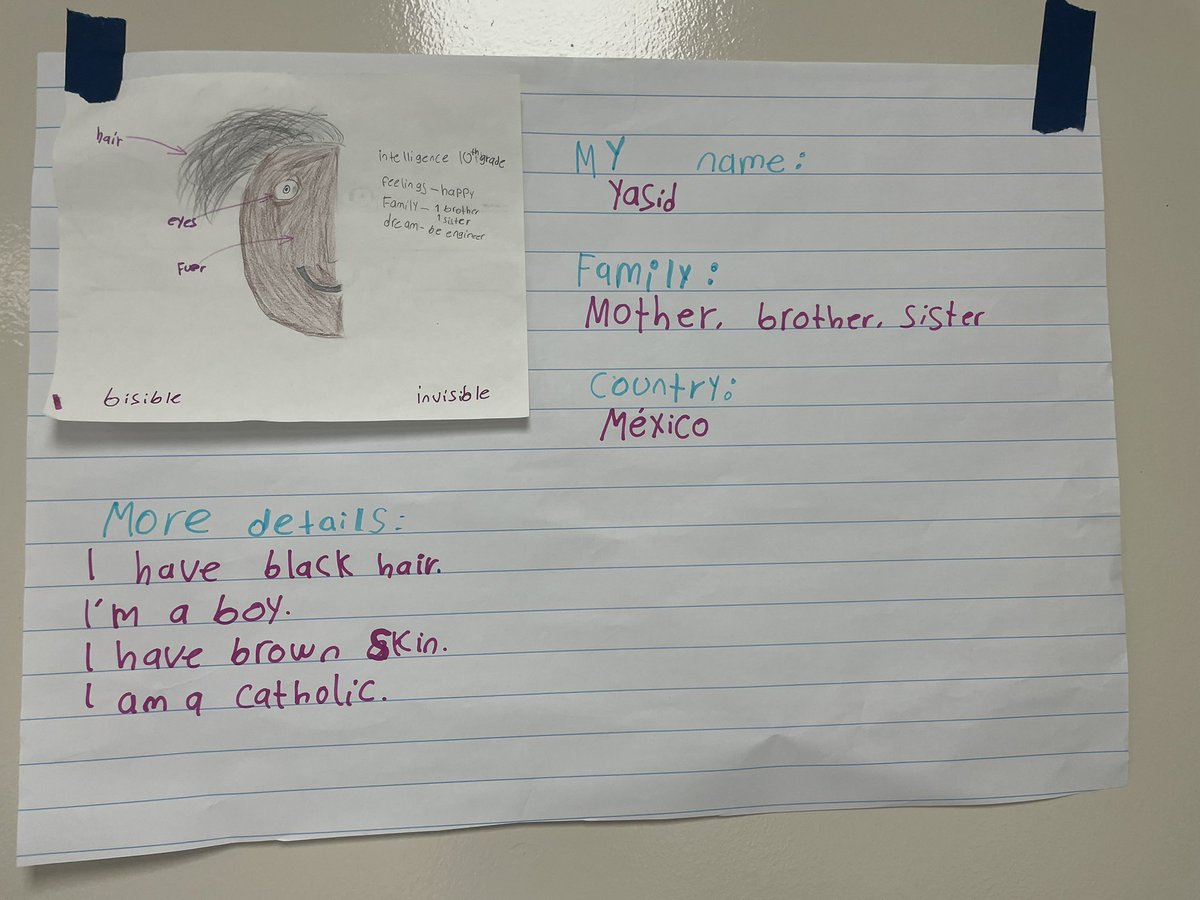 hair
eyes
Fuer
intelligence 10th grade
feelings - happy
Family - 1 brother
1 sister
dream - be engineer
bisible
invisible
MY name:
Yasid
Family:
Mother, brother, sister
Country:
México
More details:
I have black hair.
I'm a boy.
I have brown skin.
I am a catholic.